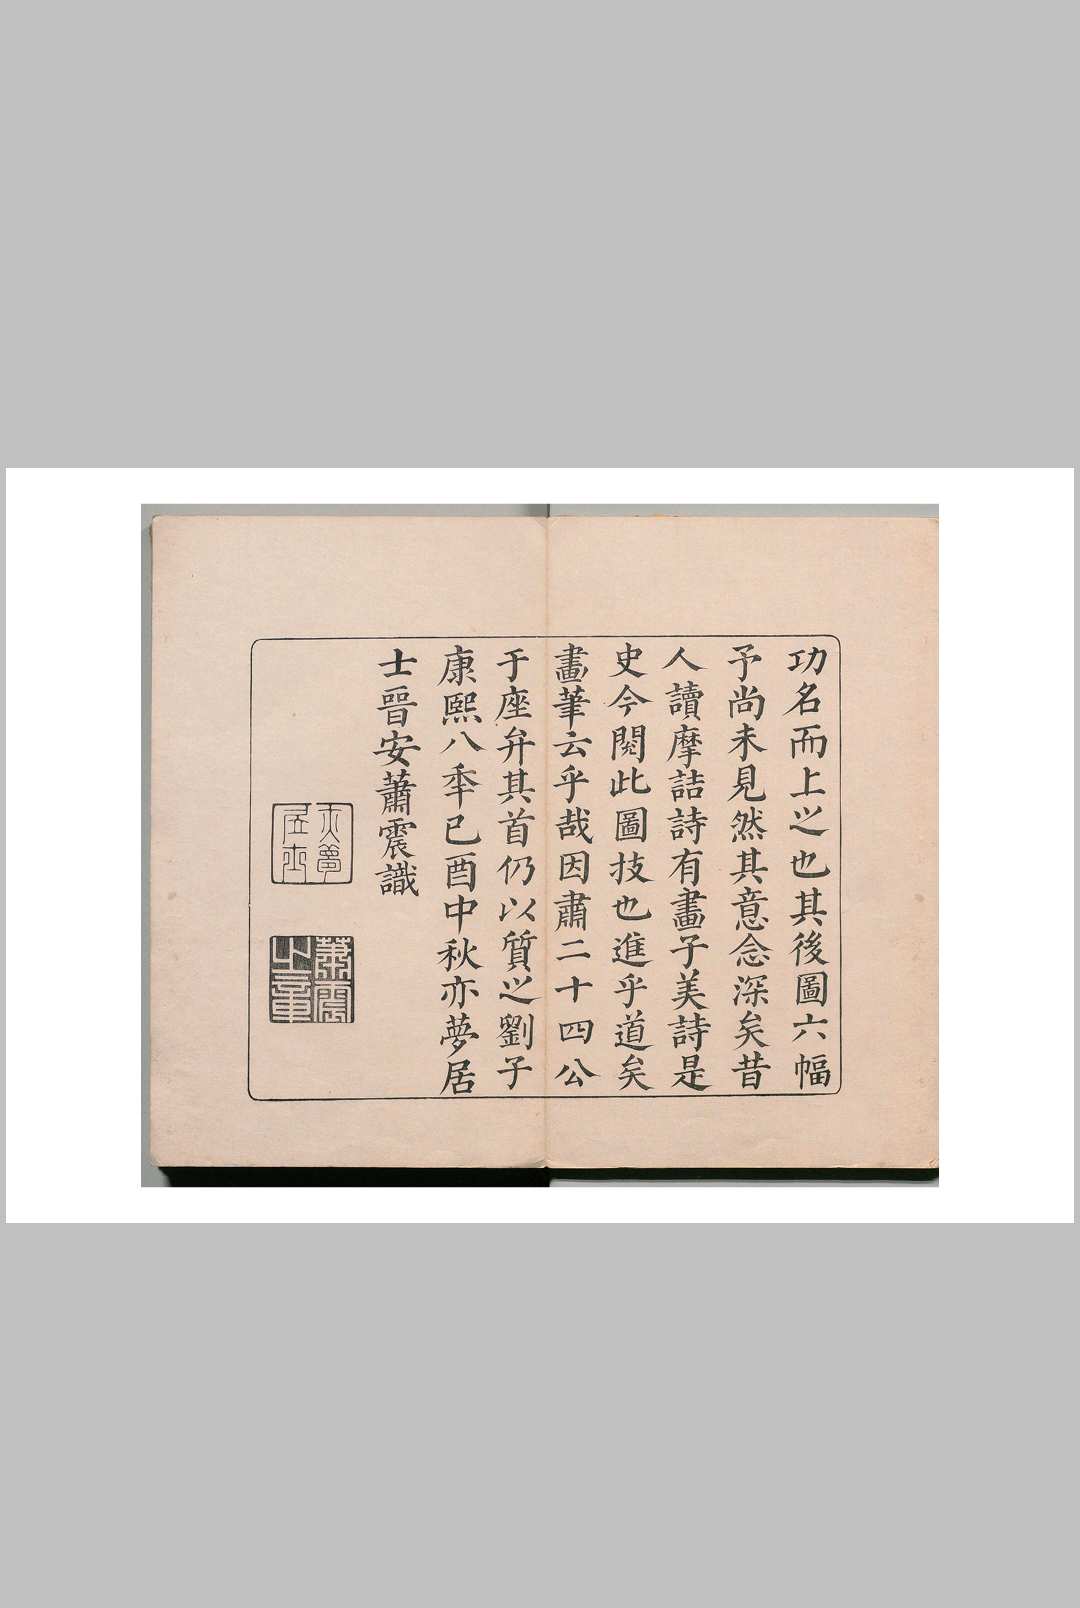 功名而上之也其後圖六幅
予尚未見然其意念深矣昔
人讀摩詰詩有畫子美詩是
史今閱此圖技也進乎道矣
畫筆云乎哉因肅二十四公
于座弁其首仍以質之劉子
康熙八秊己酉中秋亦夢居
士晉安蕭震識
亦夢居士
蕭震之章